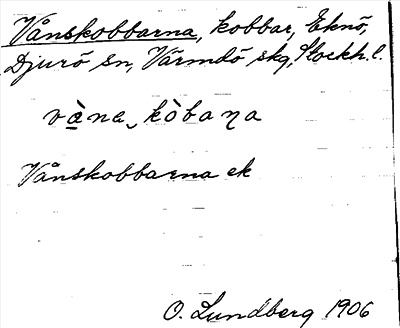 Vånskobbarna, kobbar, Eknö,
Djurö sn, Värmdö skg, Stockh. l.
vàna kòbana
Vånskobbarna ek
O. Lundberg 1906